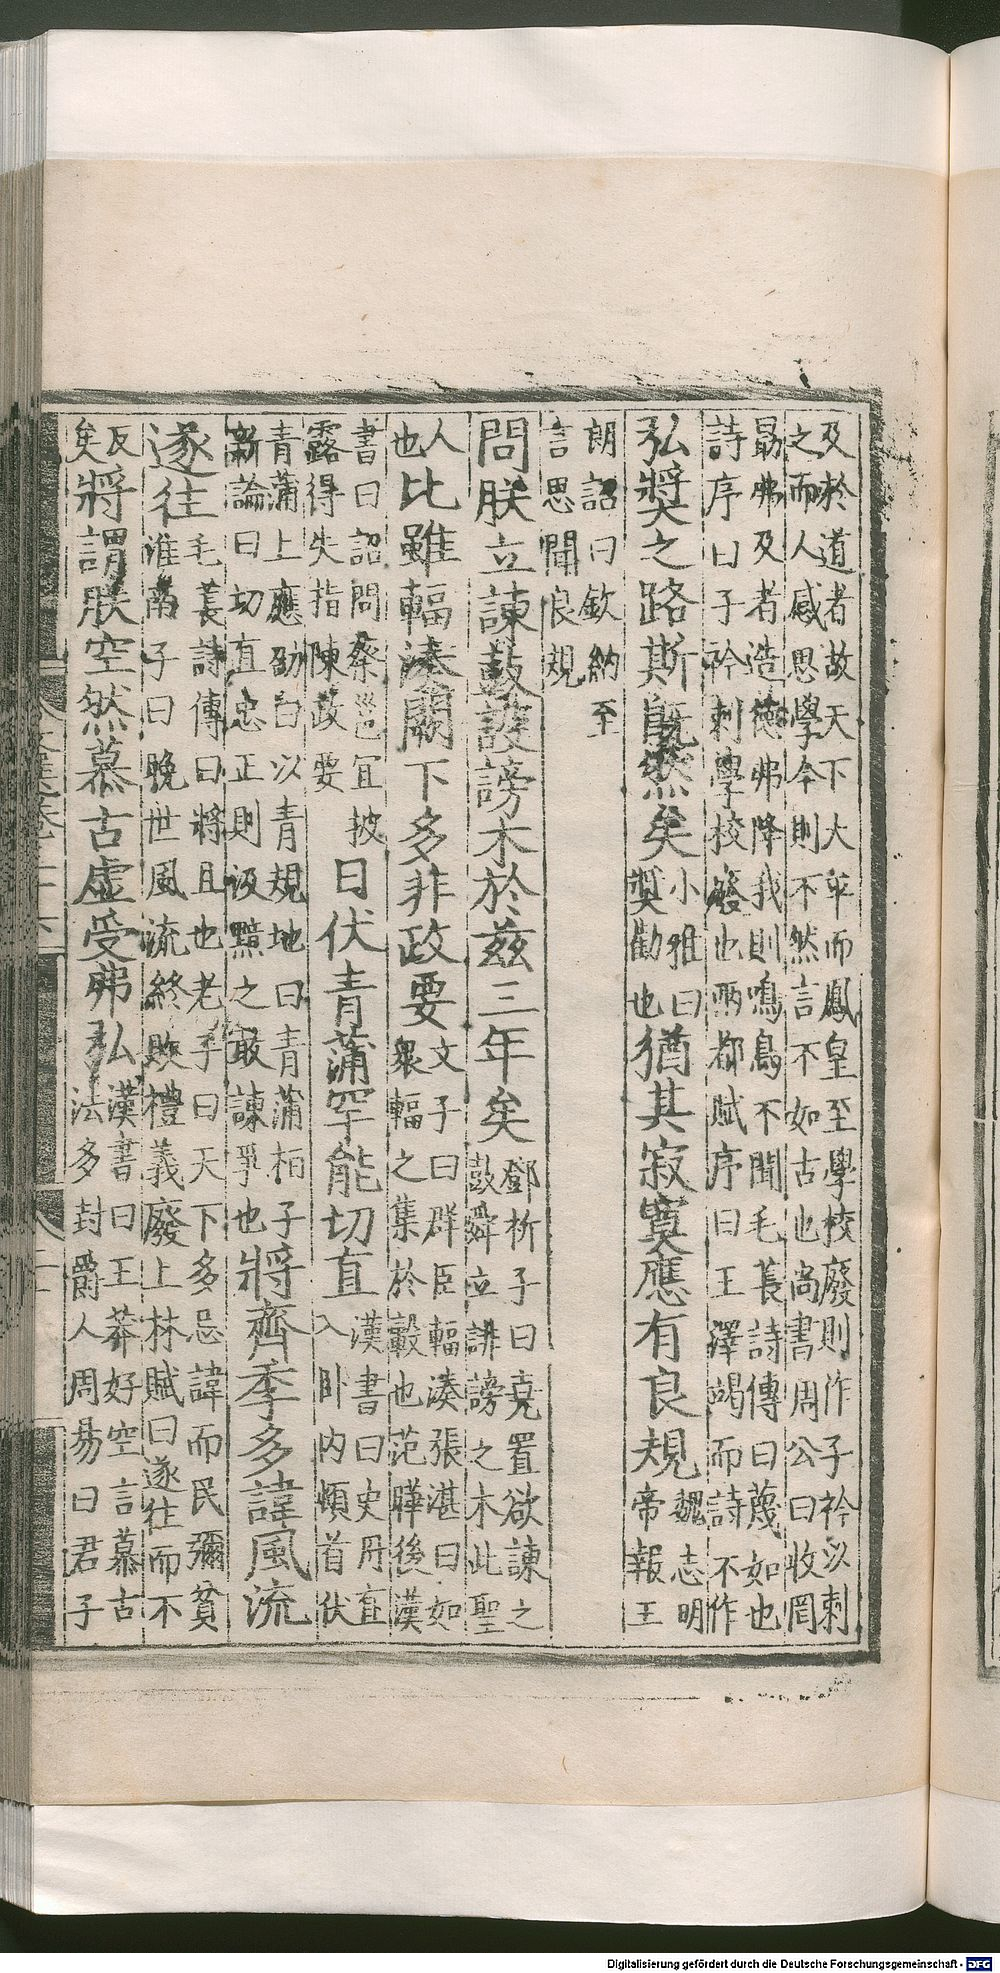 及於道者故天下大平而鳳皇至學校廢則作子衿以刺
之而人感思學今則不然言不如古也尚書周公曰收罔
勗弗及者造德弗降我則鳴鳥不聞毛萇詩傳曰蔑如也
詩序曰子衿刺學校廢也兩都賦序曰王澤竭而詩不作
弘奬之路斯既然矣
小雅曰
奬勸也
猶其寂寞應有良規
魏志明
帝報王
朗詔曰欽納至
言思聞良規
問朕立諫鼓設謗木於茲三年矣
鄧析子曰堯置欲諫之
鼓舜立誹謗之木此聖
人
也
比雖輻湊闕下多非政要
文子曰群臣輻湊張湛曰如
衆輻之集於轂也范曄後漢
書曰詔問蔡邕宜披
露得失指陳政要
日伏青蒲罕能切直
漢書曰史丹直
入卧内頓首伏
青蒲上應劭曰以青規地曰青蒲栢子
新論曰切直忠正則汲黯之敢諫爭也
將齊季多諱風流
遂往
毛萇詩傳曰將且也老子曰天下多忌諱而民彌貧
淮南子曰晚世風流終敗禮義廢上林賦曰遂往而不
反
矣
將謂朕空然慕古虛受弗弘
漢書曰王莽好空言慕古
法多封爵人周易曰君子
Digitalisierung gefördert durch die Deutsche Forschungsgemeinschaft - DFG